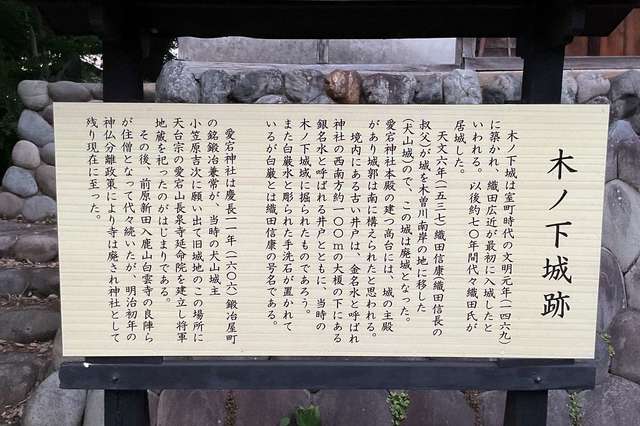 木ノ下城跡
木ノ下城は室町時代の文明元年(一四六九)
に築かれ、織田広近が最初に入城したと
いわれる。以後約七〇年間代々織田氏が
居城した。
天文六年(一五三七)織田信康(織田信長の
叔父)が城を木曽川南岸の地に移した
(犬山城)ので、この城は廃城となった。
愛宕神社本殿の建つ高台には、城の主殿
があり城郭は南に構えられたと思われる。
境内にある古い井戸は、金名水と呼ばれ
神社の西南方約一〇〇mの大榎の下にある
銀名水と呼ばれる井戸とともに、当時の
木ノ下城域に掘られたものであろう。
また白巌水と彫られた手洗石が置かれて
いるが白巌とは織田信康の号名である。
愛宕神社は慶長一一年(一六〇六)鍛冶屋町
の銘鍛冶兼常が、当時の犬山城主
小笠原吉次に願い出て旧城地のこの場所に
天台宗の愛宕山長泉寺延命院を建立し将軍
地蔵を祀ったのがはじまりである。
その後、前原新田入鹿山白雲寺の良陣ら
が住僧となって代々続いたが、明治初年の
神仏分離政策により寺は廃され神社として
残り現在に至った。